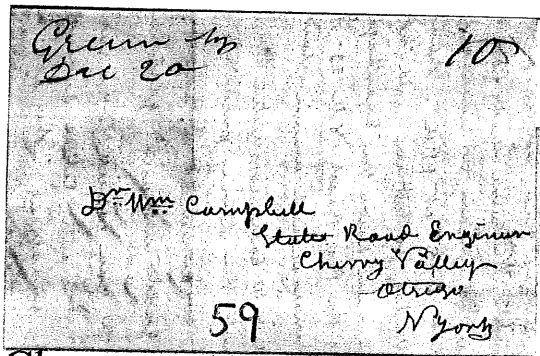 Dec 20
10
Dr. Wm. Campbell
State Road Engineer
Cherry Valley
Otsego
N York
59